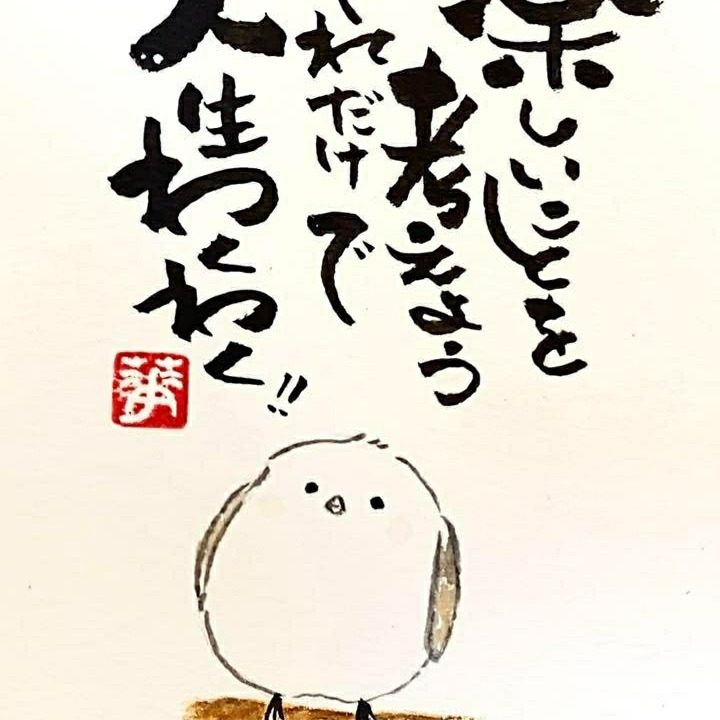 楽しいことを
考えよう
それだけで
人生わくわく!!